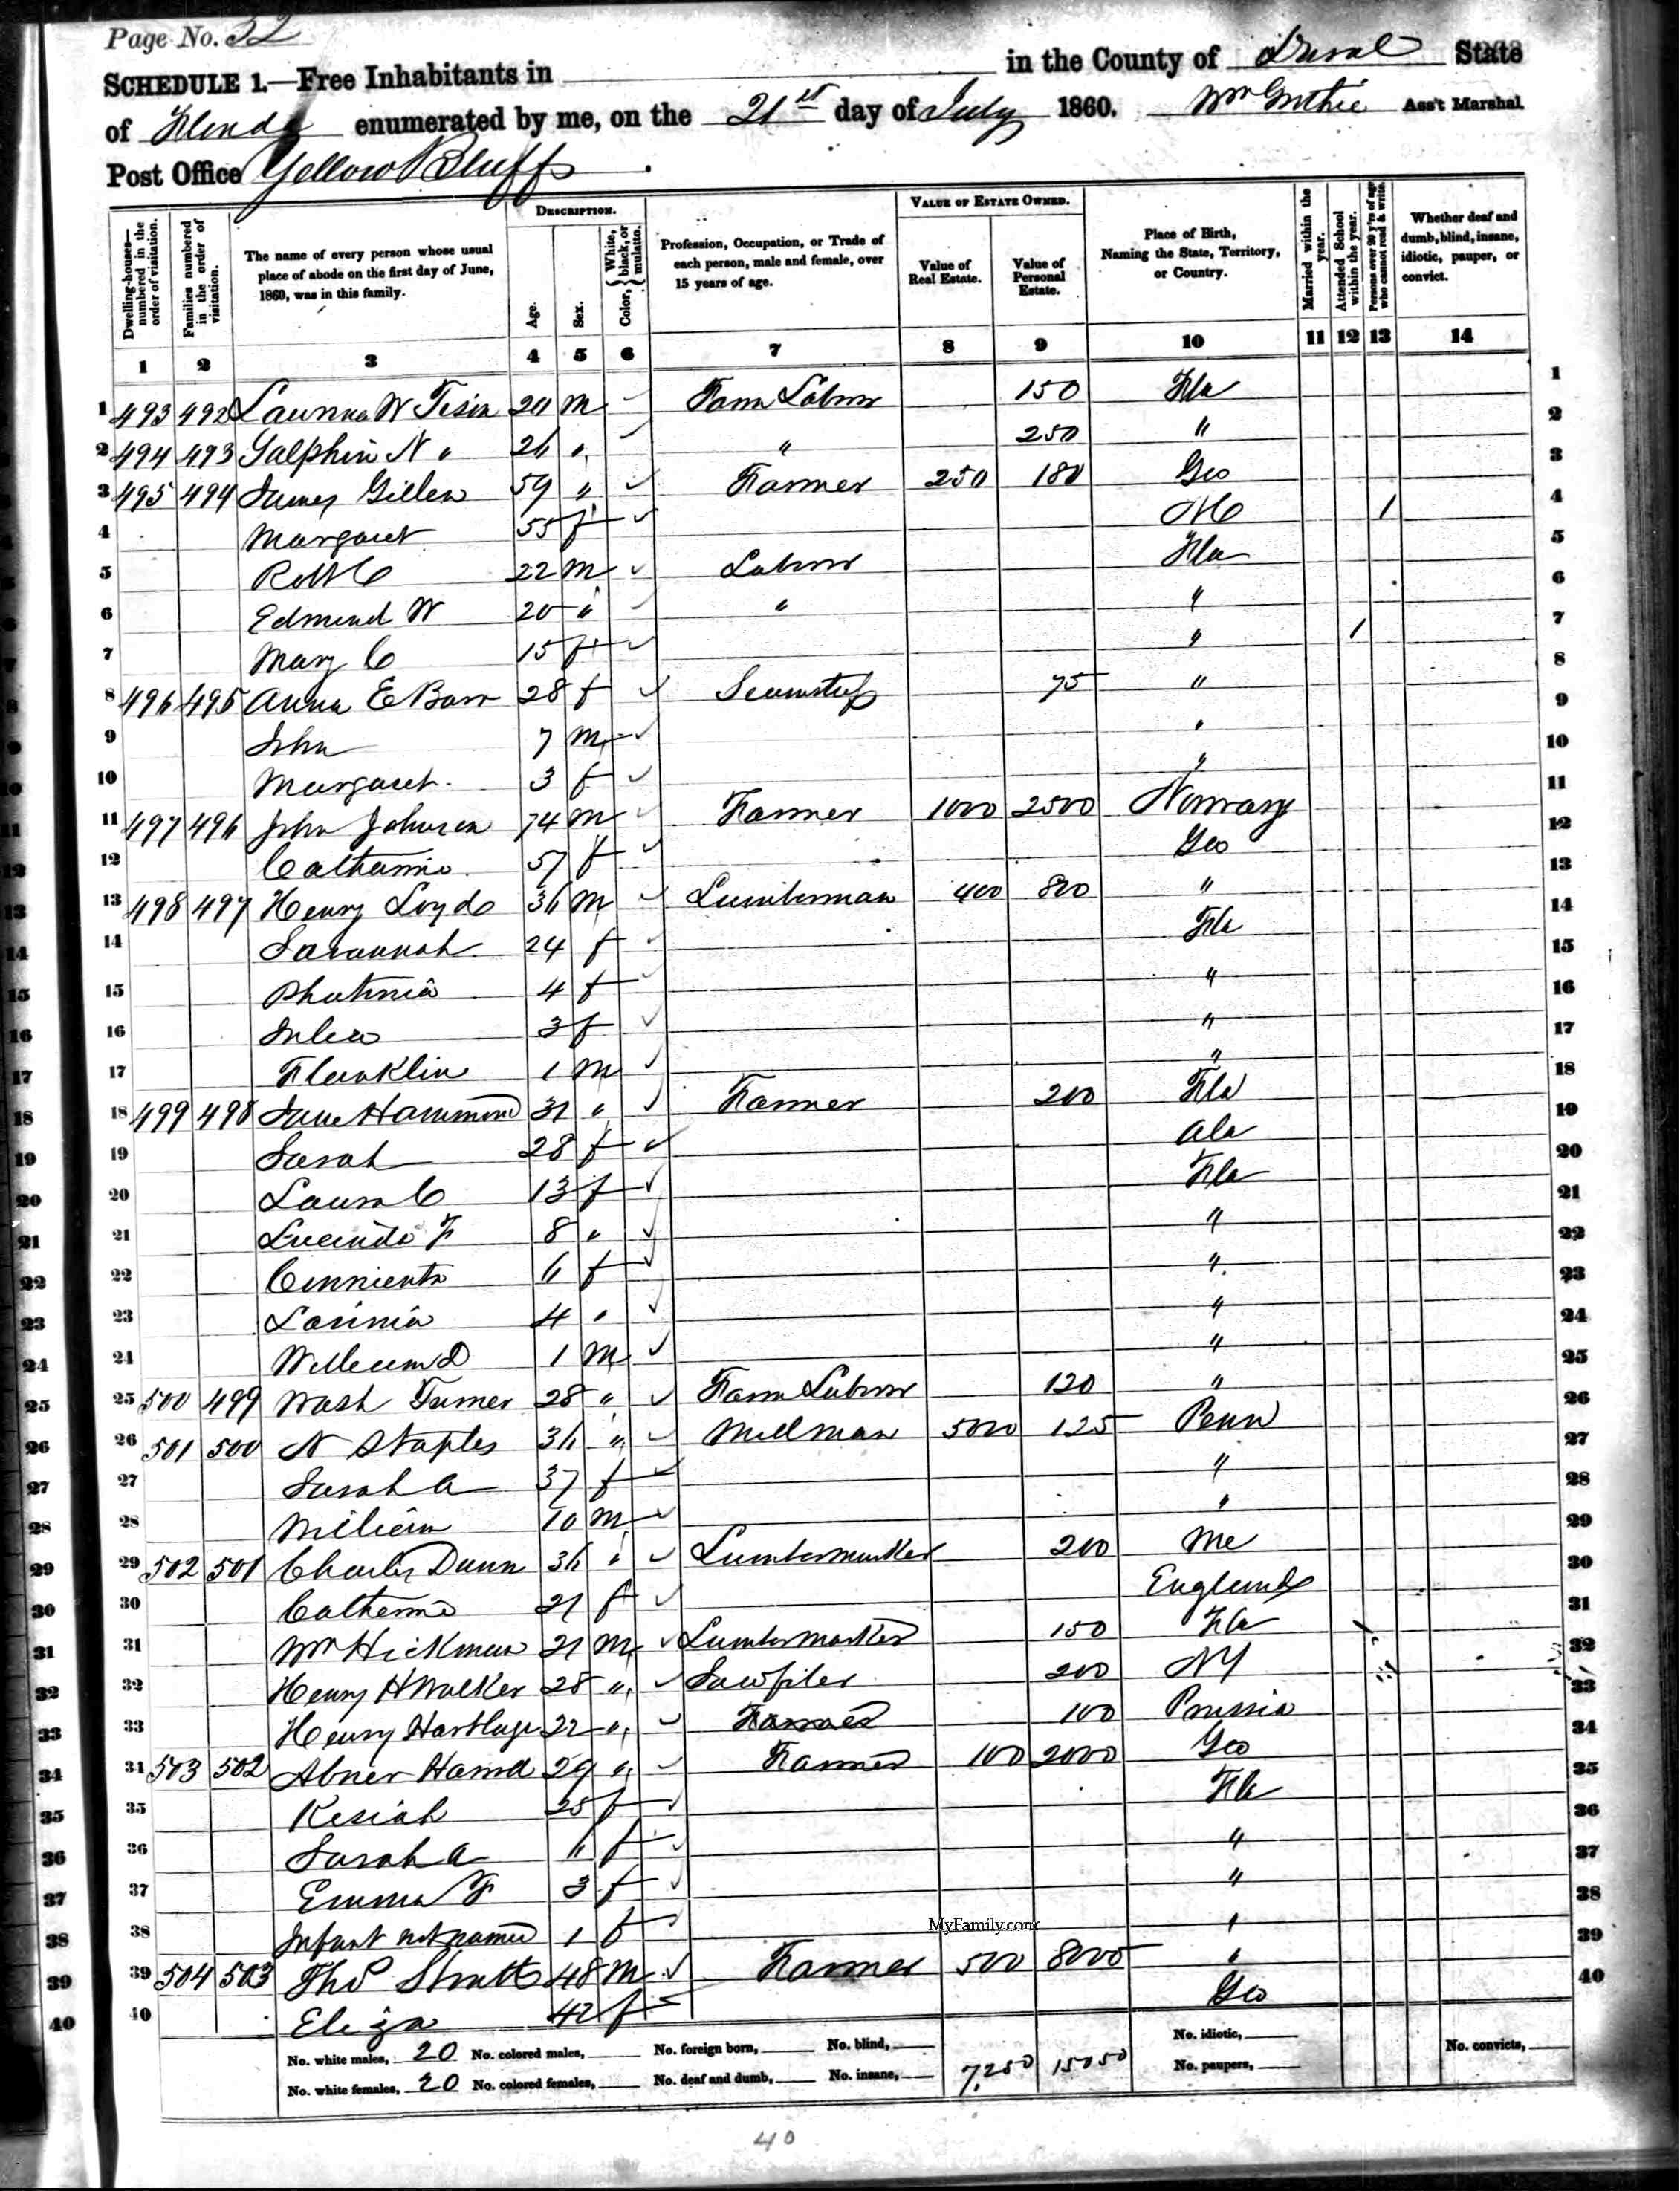 Page No. 32
SCHEDULE 1.—Free Inhabitants in in the County of Duval State
of Florida enumerated by me, on the 21st day of July 1860. Wm Guthrie Ass't Marshal
Post Office Yellow Bluff
Dwelling-houses—numbered in the order of visitation.
Families numbered in the order of visitation.
The name of every person whose usual place of abode on the first day of June, 1860, was in this family.
DESCRIPTION.
Age.
Sex.
Color, { White, black, or mulatto.
Profession, Occupation, or Trade of each person, male and female, over 15 years of age.
VALUE OF ESTATE OWNED.
Value of Real Estate.
Value of Personal Estate.
Place of Birth, Naming the State, Territory, or Country.
Married within the year.
Attended School within the year.
Persons over 20 y'rs of age who cannot read & write.
Whether deaf and dumb, blind, insane, idiotic, pauper, or convict.
1 2 3 4 5 6 7 8 9 10 11 12 13 14
1 493 492 W 20 m Farm Labor 150 Fla 1
2 494 493 Galphin N " 26 " " 250 " 2
3 495 494 James Gillen 59 " Farmer 250 180 Geo 3
4 Margaret 55 f 1 4
5 Robt C 22 m Labor Fla 5
6 Edmund W 20 " " " 6
7 Mary C 15 f " 1 7
8 496 495 Anna E Barr 28 f Seamstress 75 " 8
9 John 7 m " 9
10 Margaret 3 f " 10
11 497 496 John Johnson 74 m Farmer 1000 2500 Norway 11
12 Catharine 57 f Geo 12
13 498 497 Henry Loyd 36 m Lumberman 400 800 " 13
14 Savannah 24 f Fla 14
15 4 f " 15
16 Julia 3 f " 16
17 Flanklin 1 m " 17
18 499 498 Hammond 31 " Farmer 200 Fla 18
19 Sarah 28 f Ala 19
20 Laura C 13 f Fla 20
21 Lucinda F 8 " " 21
22 6 f " 22
23 Lavinia 4 " " 23
24 William D 1 m " 24
25 500 499 Wash Turner 28 " Farm Labor 120 " 25
26 501 500 N Staples 36 " Millman 5000 125 Penn 26
27 Sarah A 37 f " 27
28 William 10 m " 28
29 502 501 Charles Dunn 36 " 200 Me 29
30 Catherine 21 f England 30
31 Wm Hickman 21 m 150 Fla 31
32 Henry H Walker 28 " Saw filer 200 NY 32
33 Henry Hartlage 22 " Farmer 100 Prussia 33
34 503 502 Abner 29 " Farmer 100 2000 Geo 34
35 Kesiah 25 f Fla 35
36 Sarah A f " 36
37 Emma F 3 f " 37
38 Infant not named 1 f " 38
MyFamily.com
39 504 503 Thos 48 m Farmer 500 8000 " 39
40 Eliza 42 f Geo 40
No. white males, 20 No. colored males, No. foreign born, No. blind, No. idiotic, No. convicts,
No. white females, 20 No. colored females, No. deaf and dumb, No. insane, 7,250 15050 No. paupers,
40